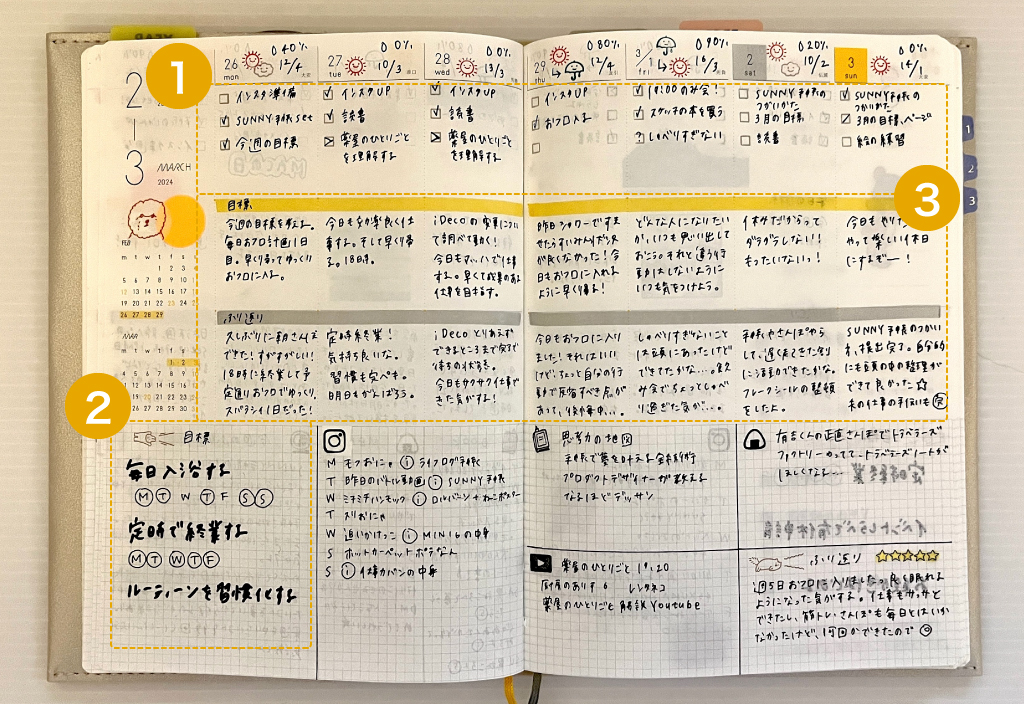 1
2
3
2
3
MARCH
2024
26 mon 40% 12/4
27 tue 0% 10/3
28 wed 0% 13/3
29 thu 80% 12/4
3/1 fri 90% 16/3
2 sat 20% 10/2
3 sun 0% 14/1
インスタ準備
SUNNY手帳set
今週の目標
インスタUP
読書
薬屋のひとりごと
を理解する
インスタUP
読書
薬屋のひとりごと
を理解する
インスタUP
お風呂入る
19:00のみ会!
スケッチの本を買う
しゃべりすぎない
SUNNY手帳の
つかいかた
3月の目標
読書
SUNNY手帳の
つかいかた
3月の目標、ページ
絵の練習
目標
今週の目標を考える。
毎日お風呂計画1日
目。早く帰ってゆっくり
お風呂に入る。
今日も気楽に良く仕
事する。そして早く帰
る。18時。
iDecoの変更につい
て調べて動く!
仕事を目指す。
昨日シャワーですま
が良くなかった!今
日もお風呂に入れる
ように早く帰る!
どんな人になりたい
か、いつも思い出して
おこう。それと違う行
動はしないように
いつも気をつけよう。
休みだからって
ダラダラしない!!
もったいないっ!
今日もやりたい
やって楽しい休日
にするぞー!
ふり返り
できた!すがすがしい!
18時に終業して予
定通りお風呂でゆっくり。
スバラシイ1日だった!
定時終業!
気持ちいいな。
習慣も完ペキ。
明日もがんばろう。
iDecoとりあえず
できるところまで完了で
待ちの状態。
今日もサクサク仕事で
きた気がする!
今日もお風呂に入り
ました!それはいい
けど、ちょっと自分の行
動で反省すべき点が
あって、
しゃべりすぎないこと
は頭にあったけど
できたかな...。飲
み会でちょっとしゃべ
り過ぎた気が...。
手帳やさんぽやら
して、遅くまで
に活動できたかな。
フレークシールの整頓
をしたよ。
SUNNY手帳のつかい
方、提出完了。自分的
にも頭の中の整理が
できて良かった☆
夫の仕事の手伝いも
FEB
m t w t f s s
1 2 3 4
5 6 7 8 9 10 11
12 13 14 15 16 17 18
19 20 21 22 23 24 25
26 27 28 29
MAR
m t w t f s s
1 2 3
目標
毎日入浴する
M T W T F S S
定時で終業する
M T W T F
ルーティーンを習慣化する
M モフおにゃ ⓘ ライフログ手帳
T 昨日のバトル動画 ⓘ SUNNY手帳
T スリおにゃ
W 追いかけっこ ⓘ MINI6の中身
S ホットカーペット
S ⓘ 仕事カバンの中身
思考力の地図
手帳で夢を叶える全技術
プロダクトデザイナーが教える
なるほどデッサン
薬屋のひとりごと 19, 20
レンタネコ
薬屋のひとりごと 解説 Youtube
有吉くんの正直さんぽでトラベラーズ
ファクトリーやってて、トラベラーズノートが
ほしくなる...
ふり返り
週5日お風呂に入りました。良く眠れる
ようになった気がする。仕事もサッサと
できたし、筋トレ、さんぽも毎日とはいか
なかったけど、何回かできたので◎
1
2
3